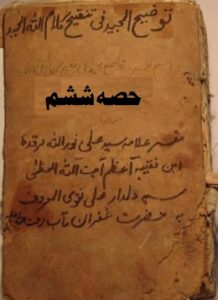 توضیح المجید فی تنقیح کلام اللہ الحمید
حصہ ششم
مفسر علامہ سید علی نور اللہ مرقدہ
ابن فقیہ اعظم آیت اللہ العظمیٰ
سید دلدار علی نقوی المعروف
بہ حضرت غفران مآب